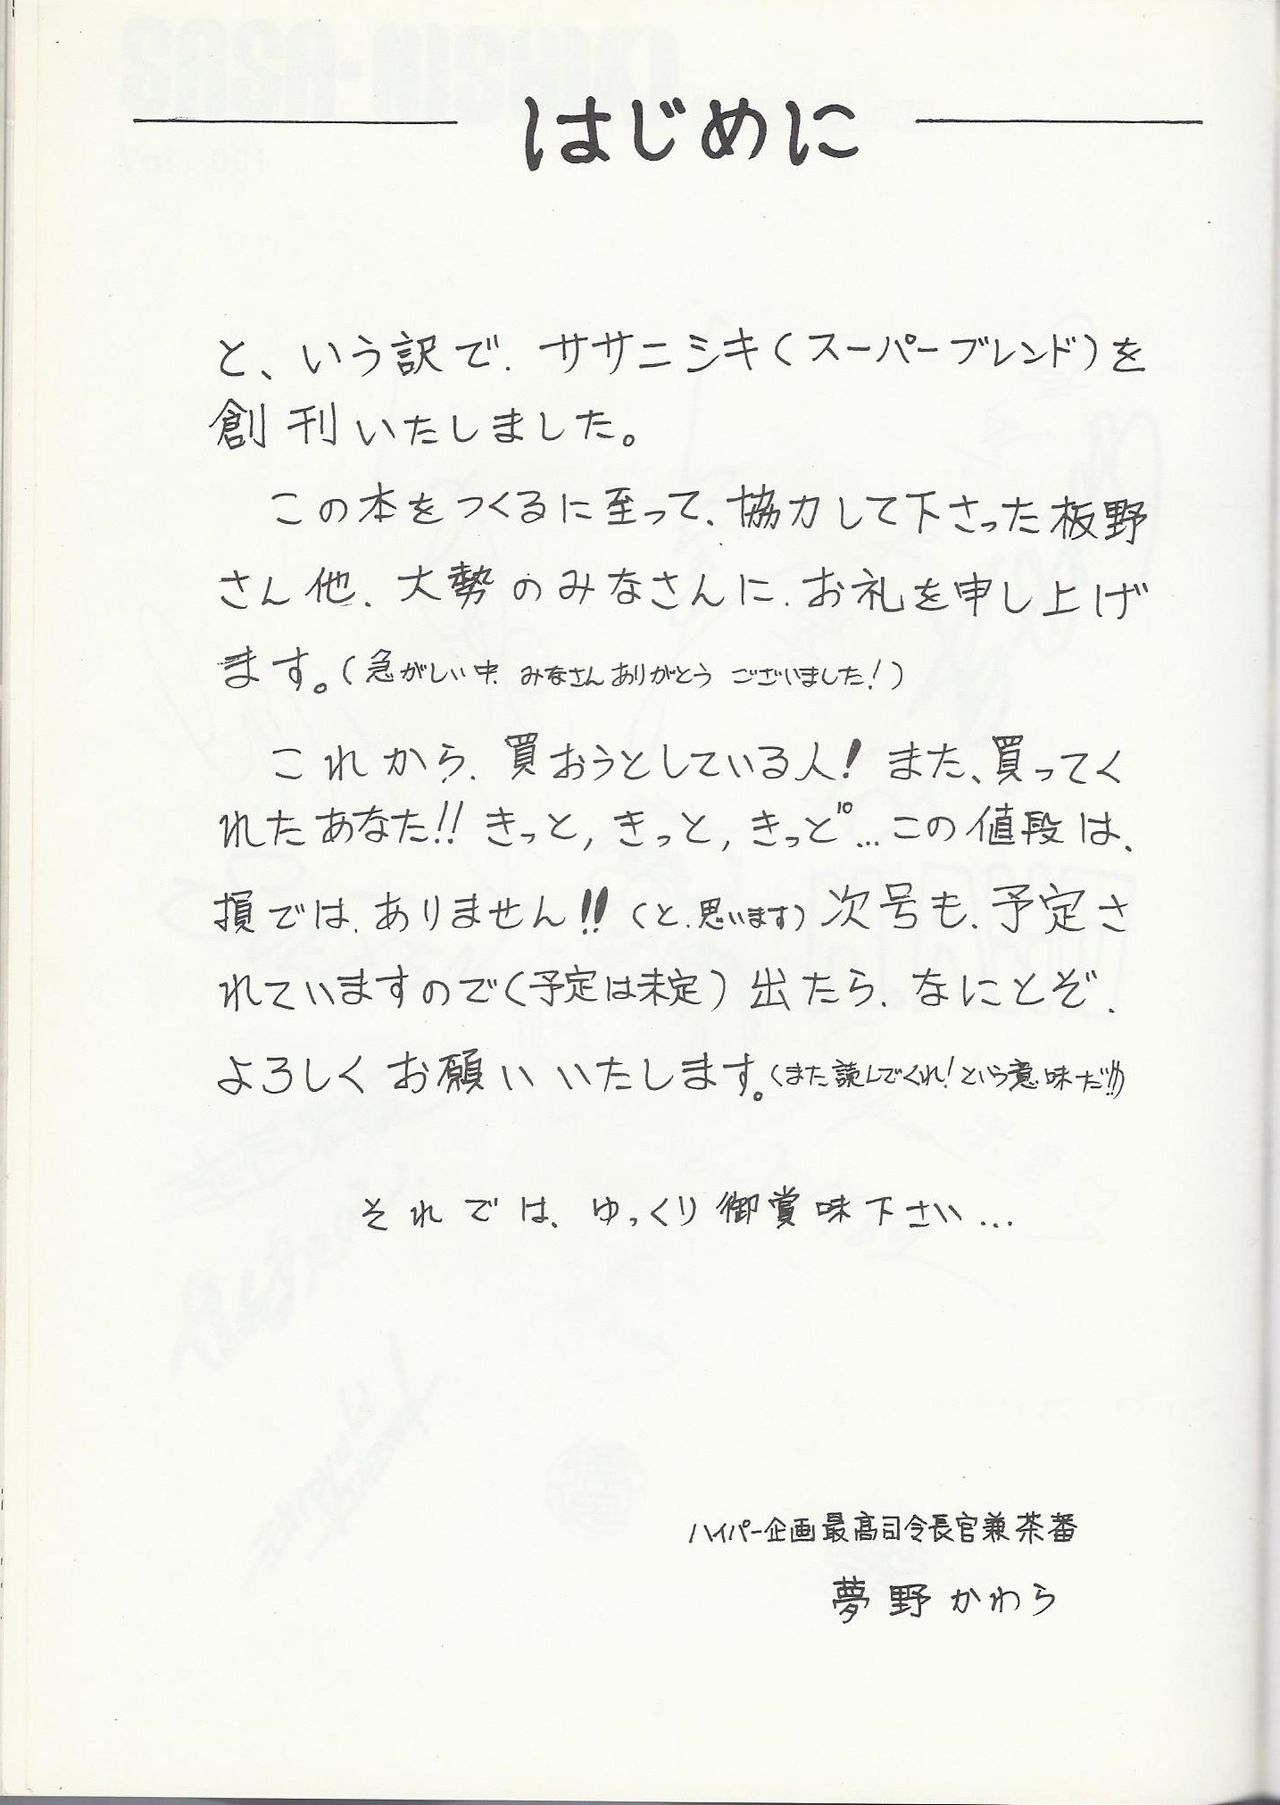 はじめに
と、いう訳で、ササニシキ(スーパーブレンド)を
創刊いたしました。
この本をつくるに至って、協力して下さった板野
さん他、大勢のみなさんに、お礼を申し上げ
ます。(急がしい中、みなさんありがとうございました!)
これから、買おうとしている人! また、買ってく
れたあなた!! きっと,きっと,きっと…この値段は、
損では、ありません!!(と、思います)次号も、予定さ
れていますので(予定は未定)出たら、なにとぞ、
よろしくお願いいたします。(また読んでくれ!という意味だ!!)
それでは、ゆっくり御賞味下さい…
ハイパー企画最高司令長官兼茶番
夢野かわら